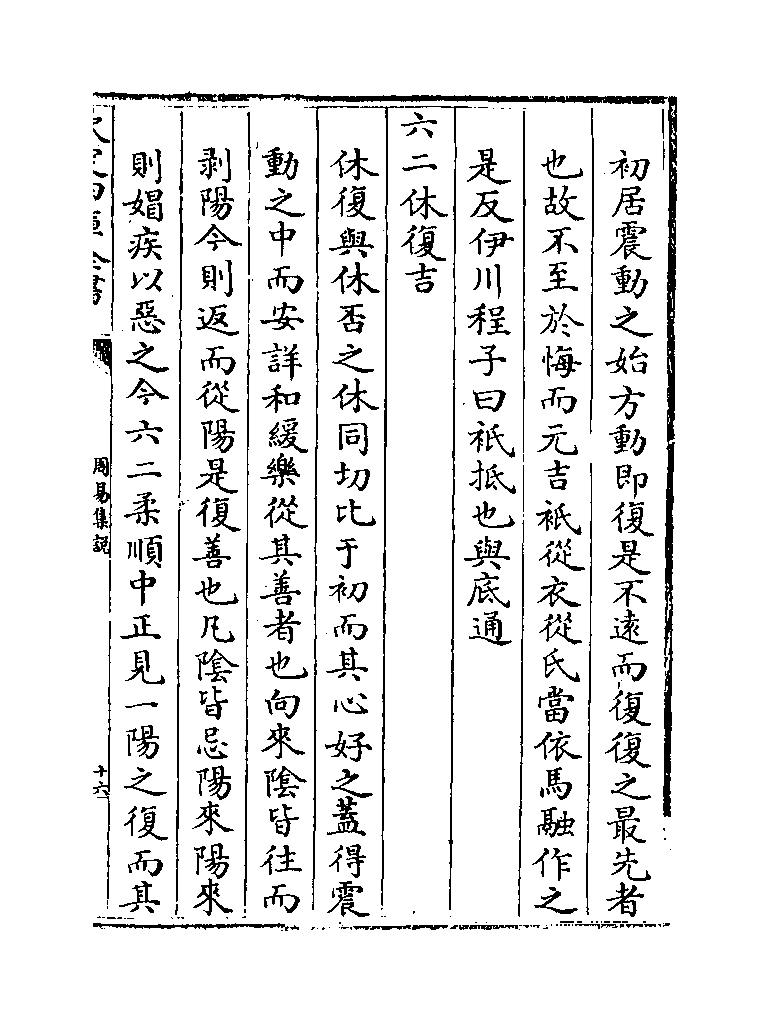 初居震動之始方動即復是不逺而復復之最先者
也故不至於悔而元吉衹從衣從氏當依馬融作之
是反伊川程子曰衹抵也與底通
六二休復吉
休復與休否之休同切比于初而其心好之蓋得震
動之中而安詳和緩樂從其善者也向來陰皆往而
剥陽今則返而從陽是復善也凡陰皆忌陽來陽來
則娼疾以惡之今六二柔順中正見一陽之復而其
欽定四庫全書
周易集説
十六